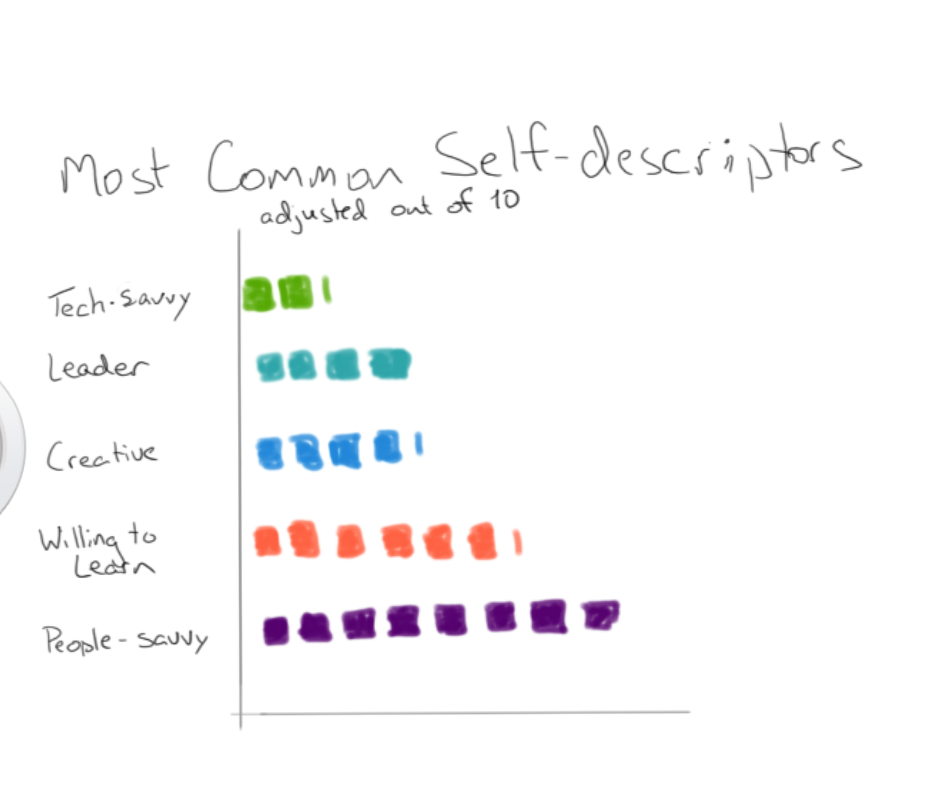 Most Common Self-descriptors
adjusted out of 10
Tech-savvy
Leader
Creative
Willing to
Learn
People-savvy